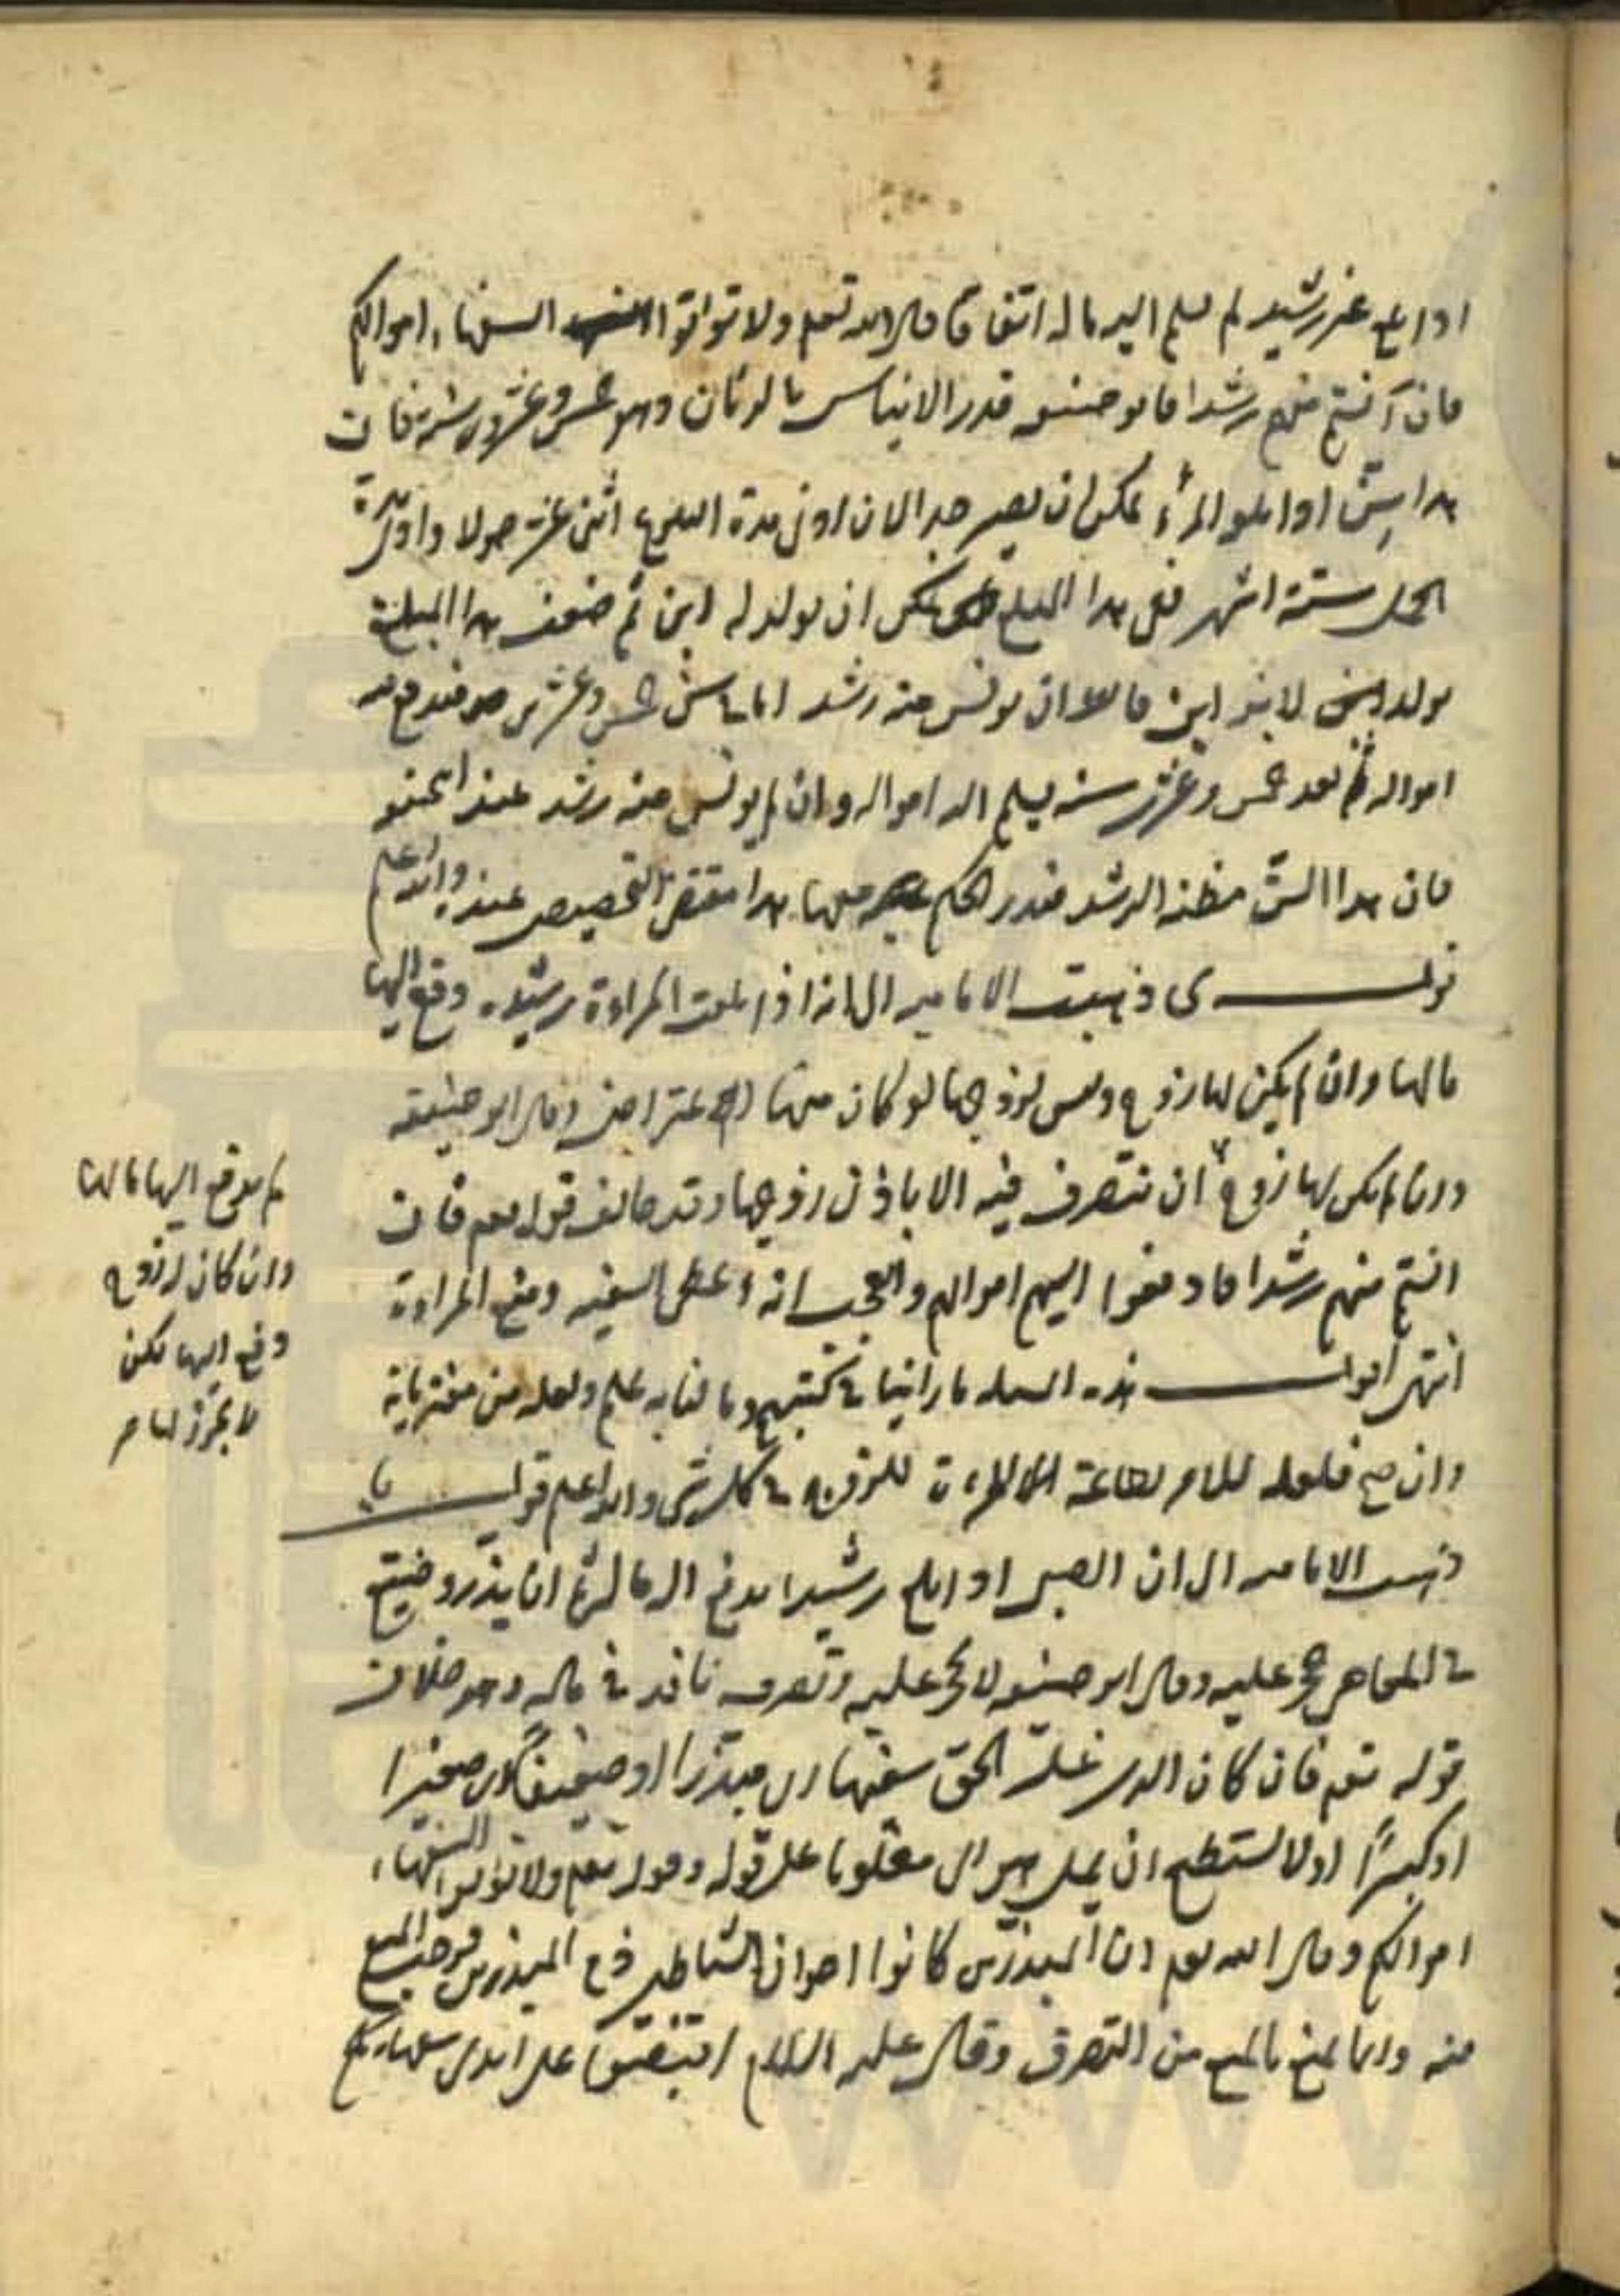 اذا بلغ غير رشيد لم يسلم اليه ماله اتفاقا قال الله تعم ولا تؤاتوا السفهاء اموالكم
فان آنستم منهم رشدا فابو حنيفه قدر الايناس بالزمان وهو خمس وعشرون سنة فان
هذا سن اذا بلغ المرء يمكن ان يصير جدا لان ادنى مدة البلوغ اثنى عشر حولا وادنى مدة
الحمل ستة اشهر ففي هذا المبلغ يمكن ان يولد له ابن ثم ضعف هذا المبلغ
يولد لابنه ابن قالوا ان يونس منه رشد الى سن خمس وعشرين
امواله ثم بعد خمس وعشرين سنه يسلم اليه امواله وان لم يونس منه رشد عند ابيحنيفه
فان هذا السن مظنه الرشد فيدور الحكم معها هذا مقتضى التخصيص عنده والله اعلم
قولـــه ى ذهبت الاماميه الى انه اذا بلغت المراءة رشيده دفع اليها
مالها وان لم يكن لها زوج وليس لزوجها لو كان معها اعتراض وقال ابو حنيفه
وان لم يكن لها زوج ان تتصرف فيه الا باذن زوجها وقد خالف قوله تعم فان
انستم منهم رشدا فادفعوا اليهم اموالهم والعجب انه اعطى السفيه ومنع المراءة
انتهى اقولــــ هذه المسئله ما رايناها في كتبهم وما لنا به علم ولعله من مفترياته
وان صح فلعله للامر بطاعة المراءة للزوج في كل شى والله اعلم قولـــه يا
ذهبت الاماميه الى ان الصبى اذا بلغ رشيدا يدفع اليه ماله ثم ان بذر وضيع
في المعاصى حجر عليه وقال ابو حنيفه لا حجر عليه وتصرفه نافذ في ماله وهو خلاف
قوله تعم فان كان الذى عليه الحق سفيها اى مبذرا او ضعيفا اى صغيرا
او كبيرا او لا يستطيع ان يمل هو اى مغلوبا على عقله وقوله تعم ولا تؤتوا السفهاء
اموالكم وقال الله تعم ان المبذرين كانوا اخوان الشياطين ذم المبذرين فوجب المنع
منه وانما يمنع بالمنع من التصرف وقال عليه السلام اقبضوا على ايدى سفهائكم
لم يدفع اليها مالها
وان كان لها زوج
دفع اليها لكن
لا يجوز لها